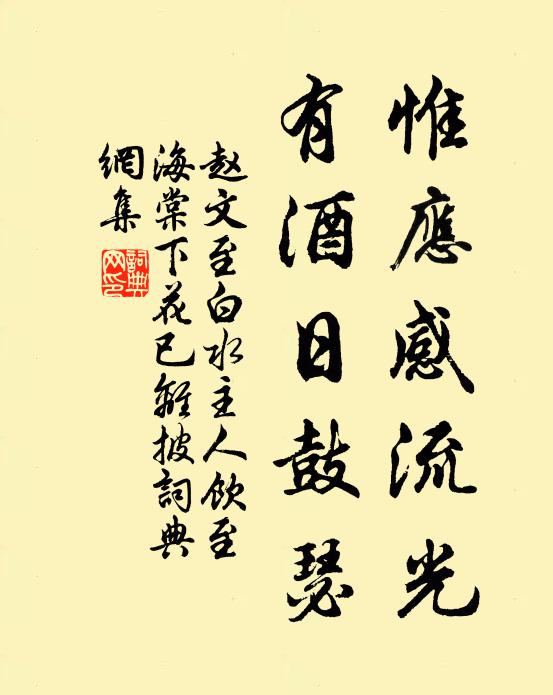 惟應感流光
有酒日鼓瑟
赵文至白水主人飲至
海棠下花已離披詞典
網集
詞典網印